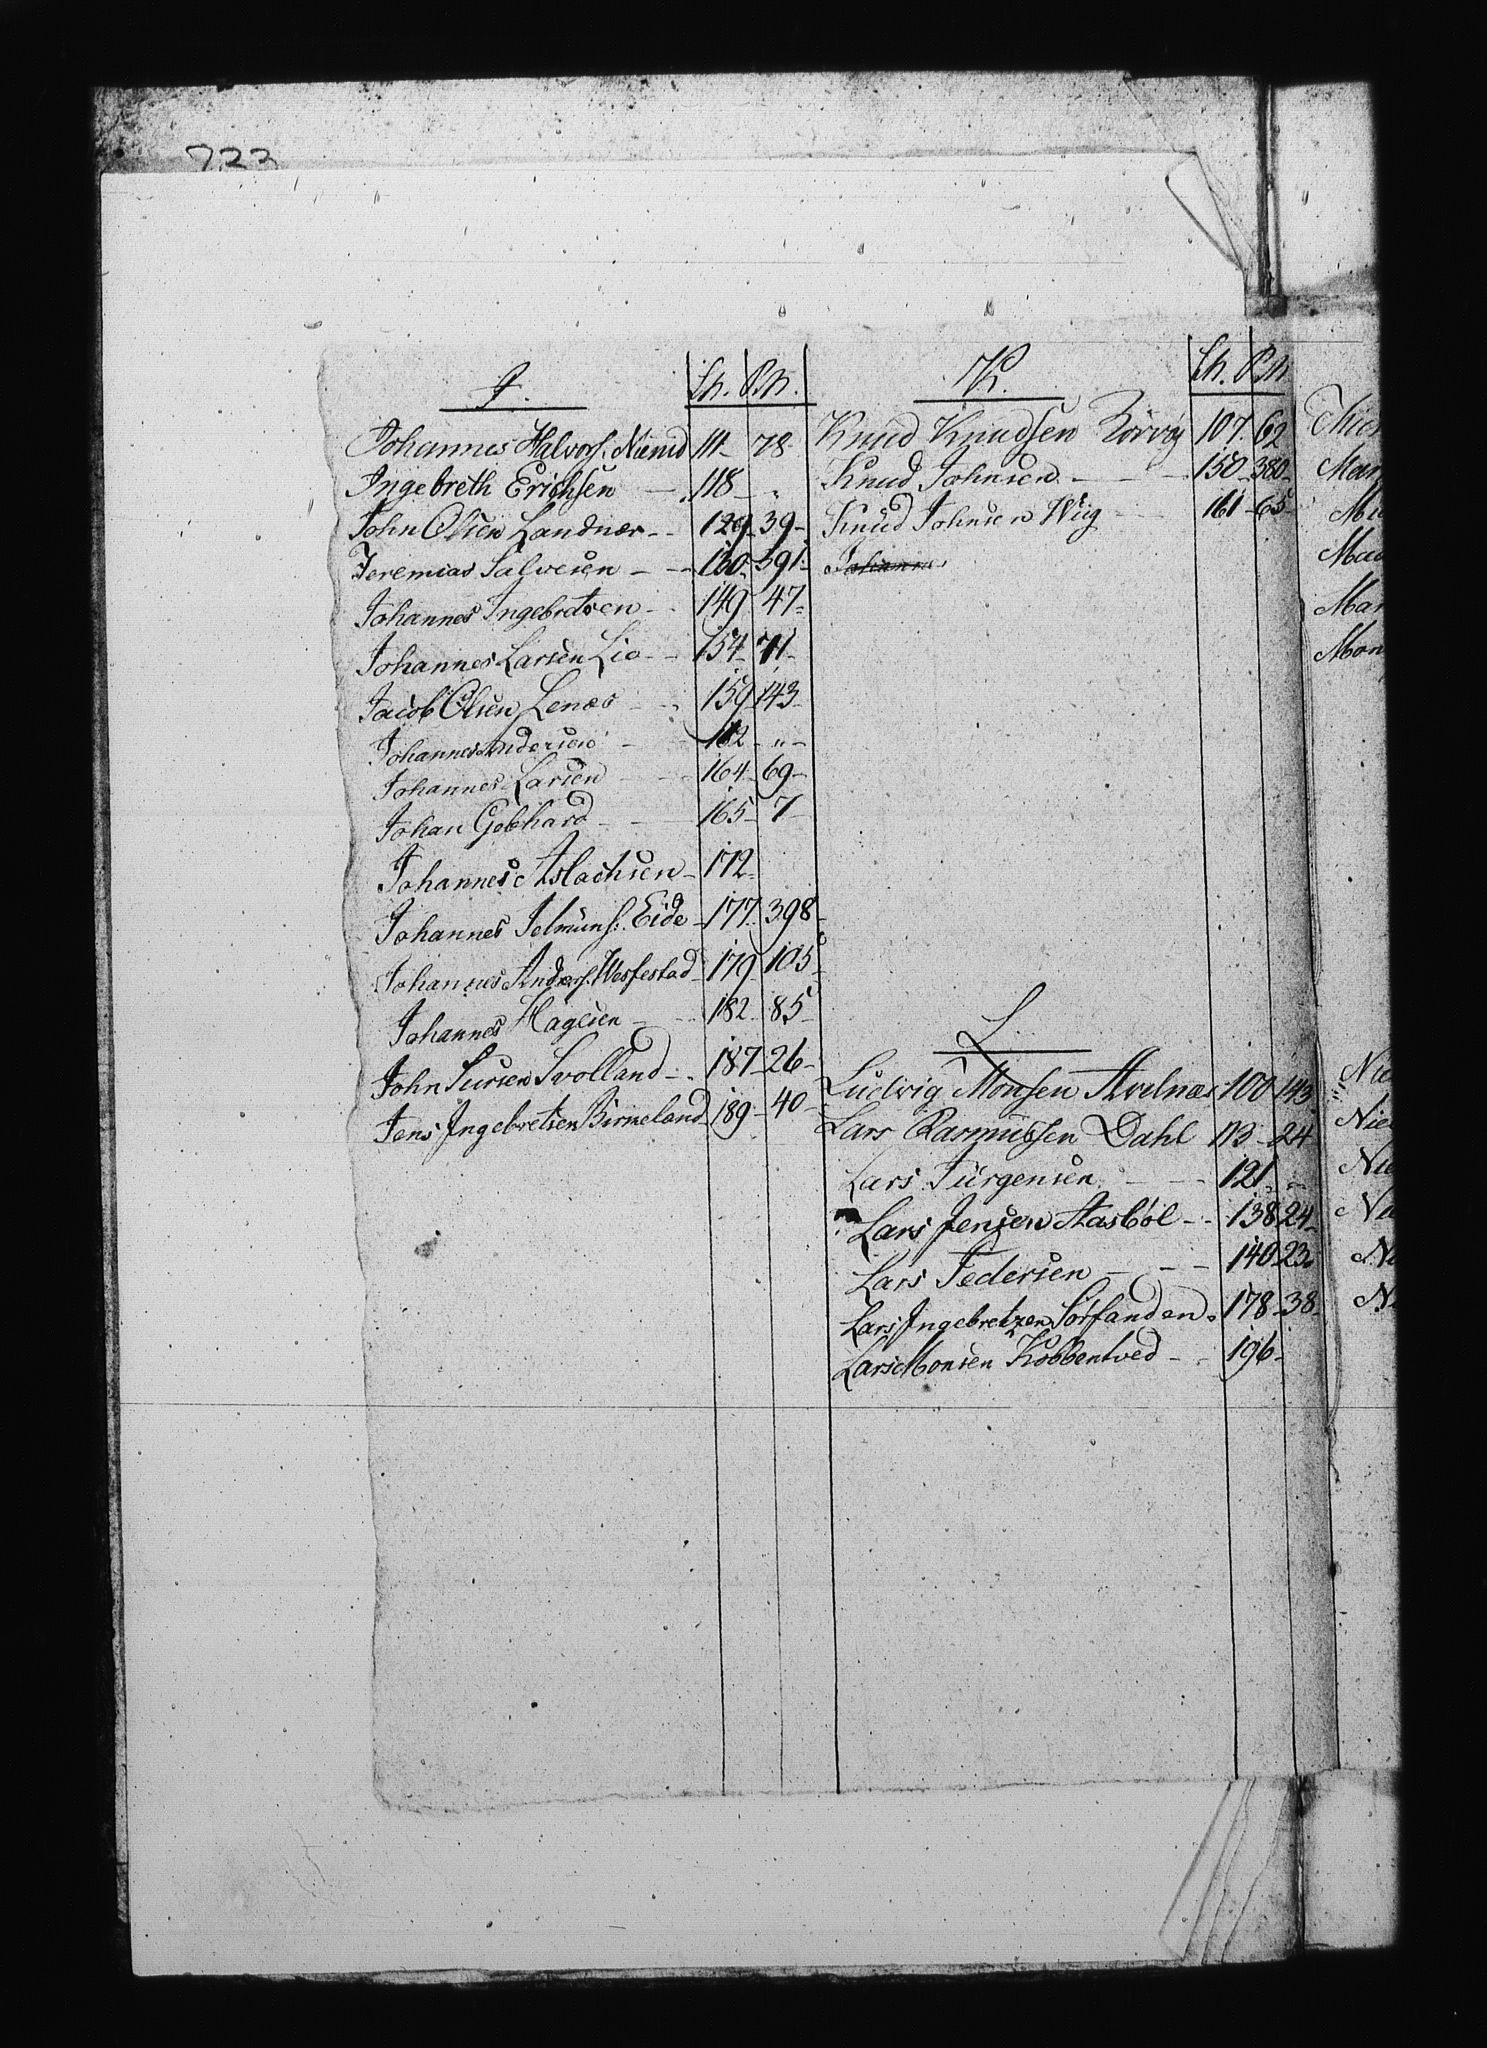 723
J. Lh. P.N.
Johannes Halvors: Nienid 111 78
Ingebreth Erichsen 118 "
John Olsen Landnær 129 39
Jeremias Salvesen 130 391
Johannes Ingebretsen 149 47
Johannes Larsen Lie 154 71
Jacob Olsen Lenæs 159 143
Johannes Andersen 162 "
Johannes Larsen 164 69
Johan Gebhard 165 7
Johannes Aslachsen 172
Johannes Ielmuns: Eide 177 398
Johannes Anders: Wesfestad 179 105
Johannes Hagesen 182 85
John Sursen Svolland 187 26
Jens Ingebretsen Birkeland 189 40
K. Lh. P.N
Knud Knudsen Rörvig 107 62
Knud Johnsen 150 380
Knud Johnsen Wiig 161 65
Johannes
L.
Ludvig Monsen Avelnæs 100 143
Lars Rasmussen Dahl 113 24
Lars Jürgensen 121 "
Lars Jensen Aasböl 138 24
Lars Federsen 140 23
Lars Ingebretzen Sörfanden 178 38
Lars Monsen Kobbentved 196